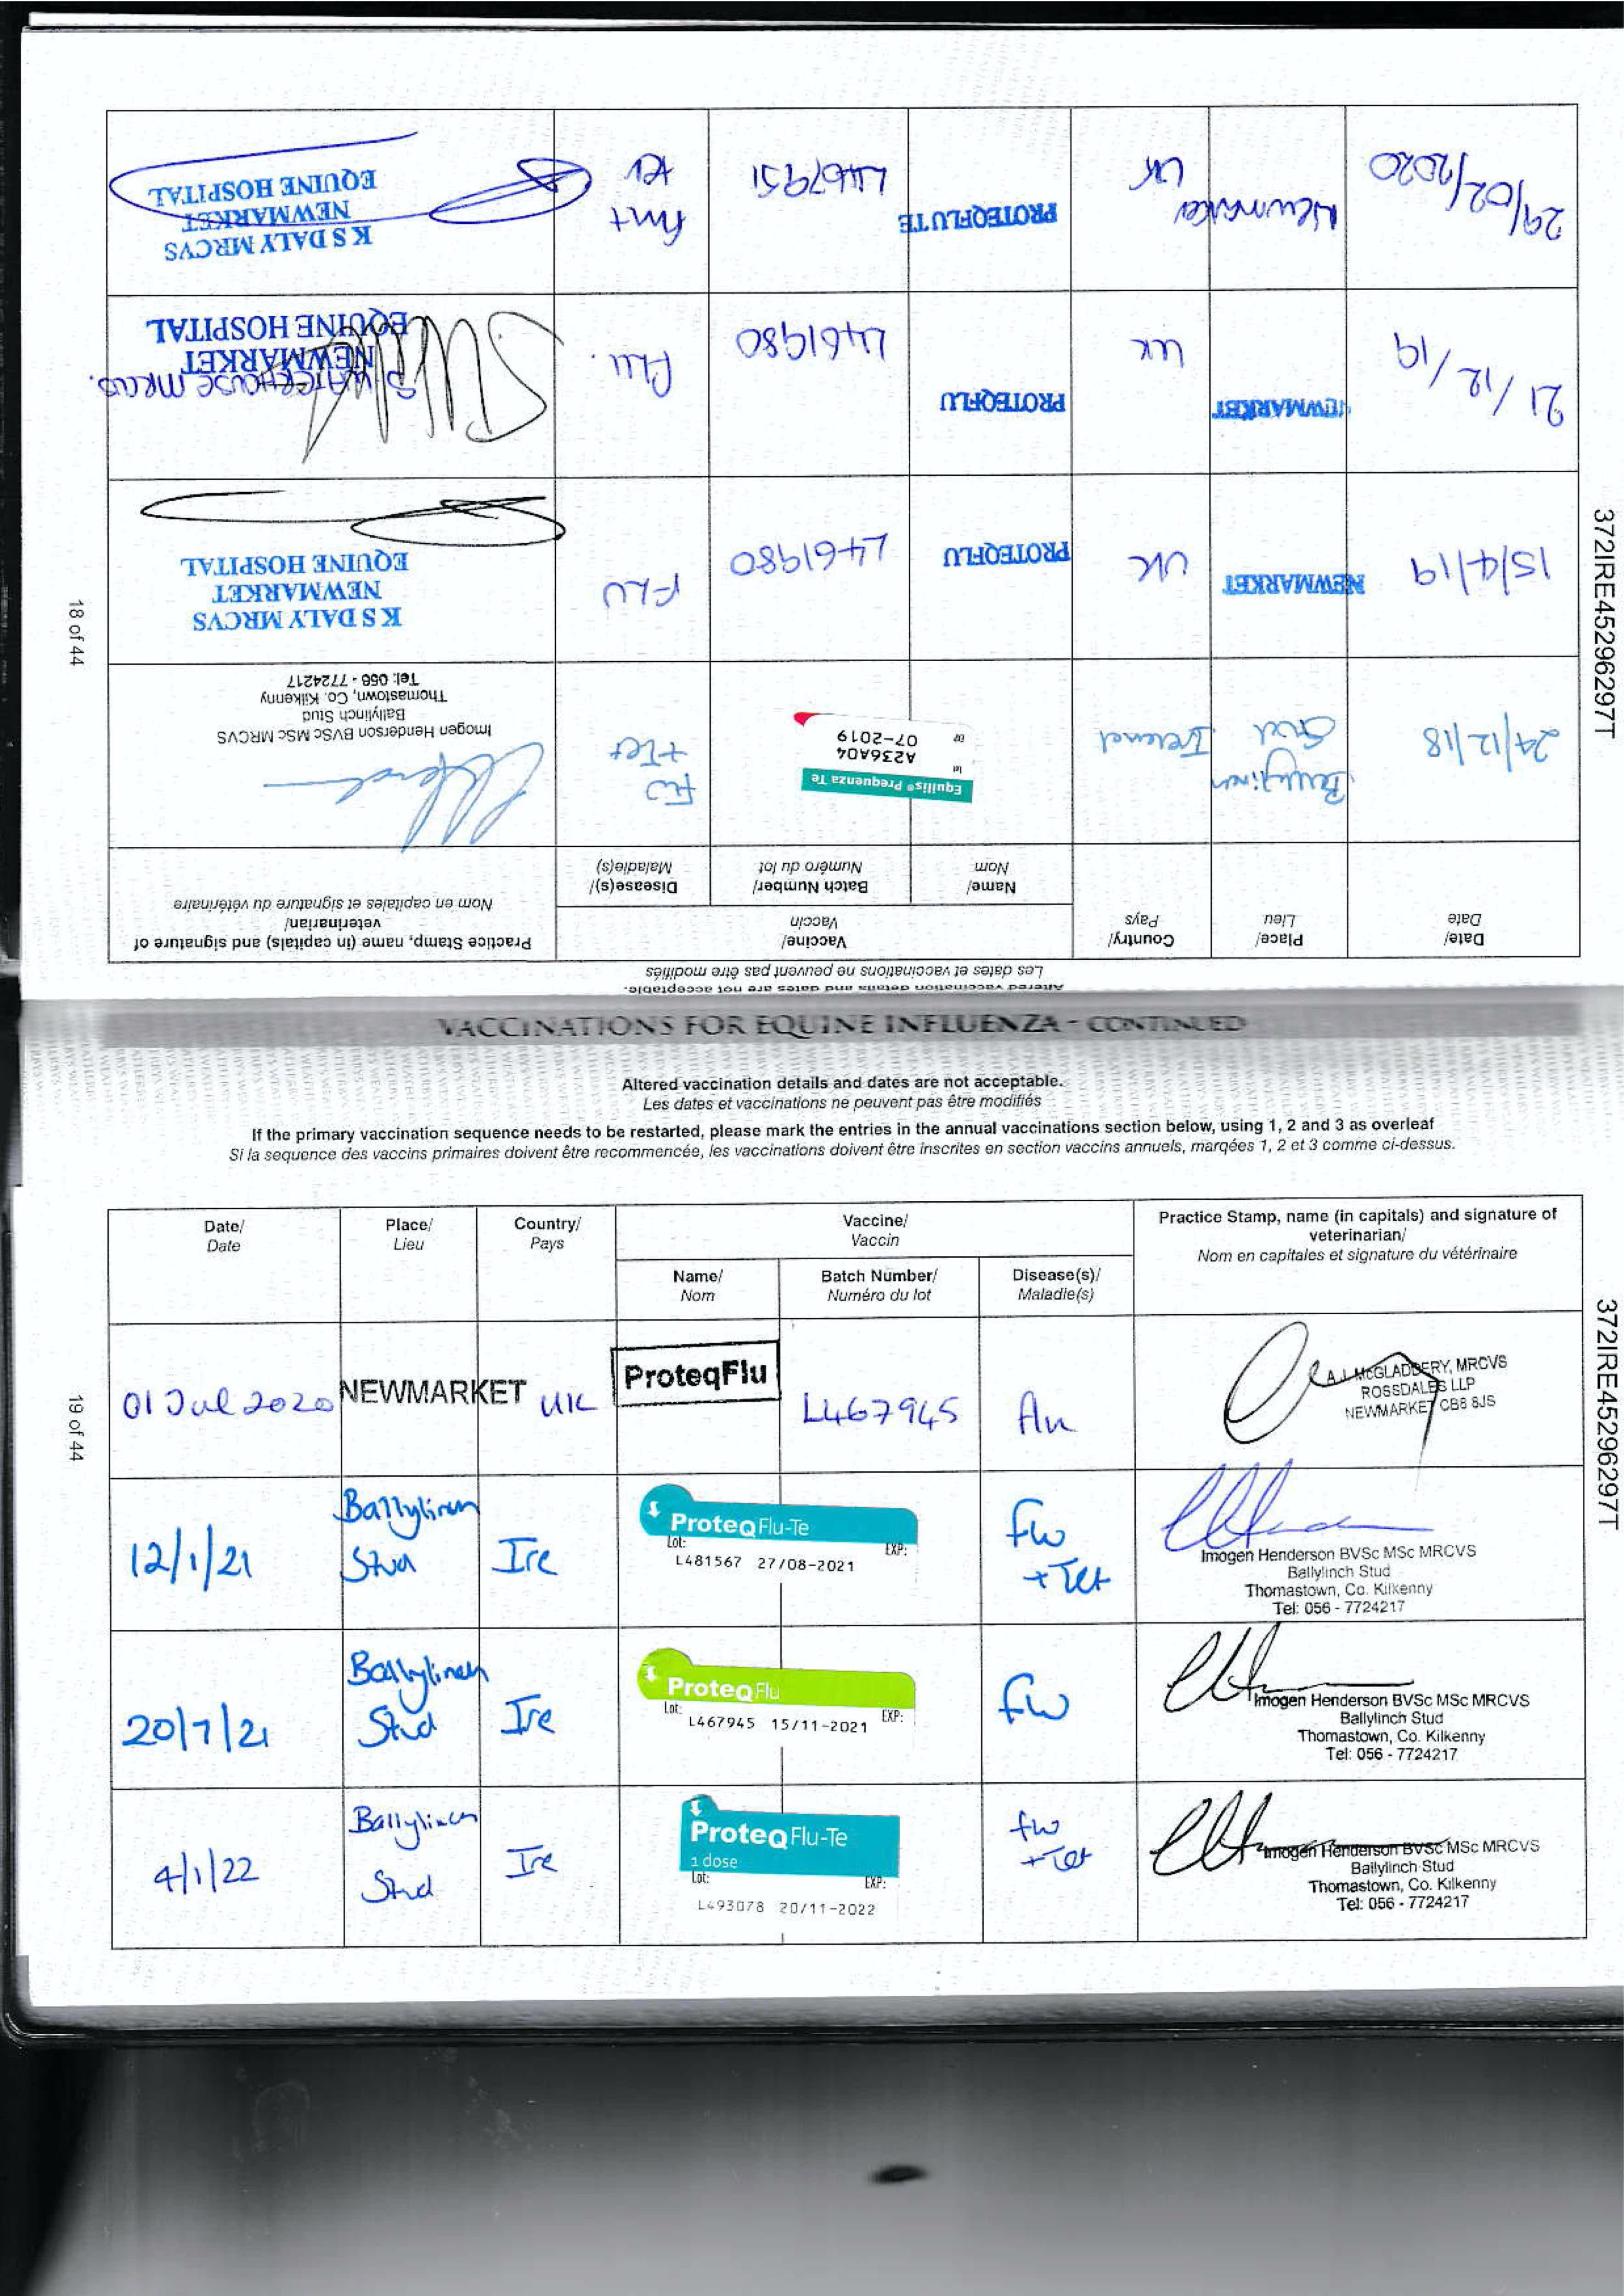 Altered vaccination details and dates are not acceptable.
Les dates et vaccinations ne peuvent pas être modifiés
Date/
Date
Place/
Lieu
Country/
Pays
Vaccine/
Vaccin
Name/
Nom
Batch Number/
Numéro du lot
Disease(s)/
Maladie(s)
Practice Stamp, name (in capitals) and signature of
veterinarian/
Nom en capitales et signature du vétérinaire
24/12/18
Stud
Ireland
Equilis® Prequenza Te
Lot
A236A04
07-2019
+ Tet
Imogen Henderson BVSc MSc MRCVS
Ballylinch Stud
Thomastown, Co. Kilkenny
Tel: 056 - 7724217
15/4/19
NEWMARKET
UK
PROTEQFLU
L461980
FLU
K S DALY MRCVS
NEWMARKET
EQUINE HOSPITAL
21/12/19
NEWMARKET
UK
PROTEQFLU
L461980
Flu.
WATERHOUSE MRCVS.
NEWMARKET
EQUINE HOSPITAL
29/02/2020
Newmarket
UK
PROTEQFLUTE
L467951
K S DALY MRCVS
NEWMARKET
EQUINE HOSPITAL
372IRE45296297T
18 of 44
VACCINATIONS FOR EQUINE INFLUENZA - CONTINUED
Altered vaccination details and dates are not acceptable.
Les dates et vaccinations ne peuvent pas être modifiés
If the primary vaccination sequence needs to be restarted, please mark the entries in the annual vaccinations section below, using 1, 2 and 3 as overleaf
Si la sequence des vaccins primaires doivent être recommencée, les vaccinations doivent être inscrites en section vaccins annuels, marqées 1, 2 et 3 comme ci-dessus.
Date/
Date
Place/
Lieu
Country/
Pays
Vaccine/
Vaccin
Name/
Nom
Batch Number/
Numéro du lot
Disease(s)/
Maladie(s)
Practice Stamp, name (in capitals) and signature of
veterinarian/
Nom en capitales et signature du vétérinaire
01 Jul 2020
NEWMARKET
UK
ProteqFlu
L467945
flu
A.J. McGLADDERY, MRCVS
ROSSDALES LLP
NEWMARKET CB8 8JS
12/1/21
Ballylinch
Stud
Ire
ProteqFlu-Te
Lot:
EXP:
L481567 27/08-2021
+ Tet
Imogen Henderson BVSc MSc MRCVS
Ballylinch Stud
Thomastown, Co. Kilkenny
Tel: 056 - 7724217
20/7/21
Ballylinch
Stud
Ire
ProteqFlu
Lot:
EXP:
L467945 15/11-2021
Imogen Henderson BVSc MSc MRCVS
Ballylinch Stud
Thomastown, Co. Kilkenny
Tel: 056 - 7724217
4/1/22
Ballylinch
Stud
Ire
ProteqFlu-Te
1 dose
Lot:
EXP:
L493078 20/11-2022
+ Tet
Imogen Henderson BVSc MSc MRCVS
Ballylinch Stud
Thomastown, Co. Kilkenny
Tel: 056 - 7724217
372IRE45296297T
19 of 44